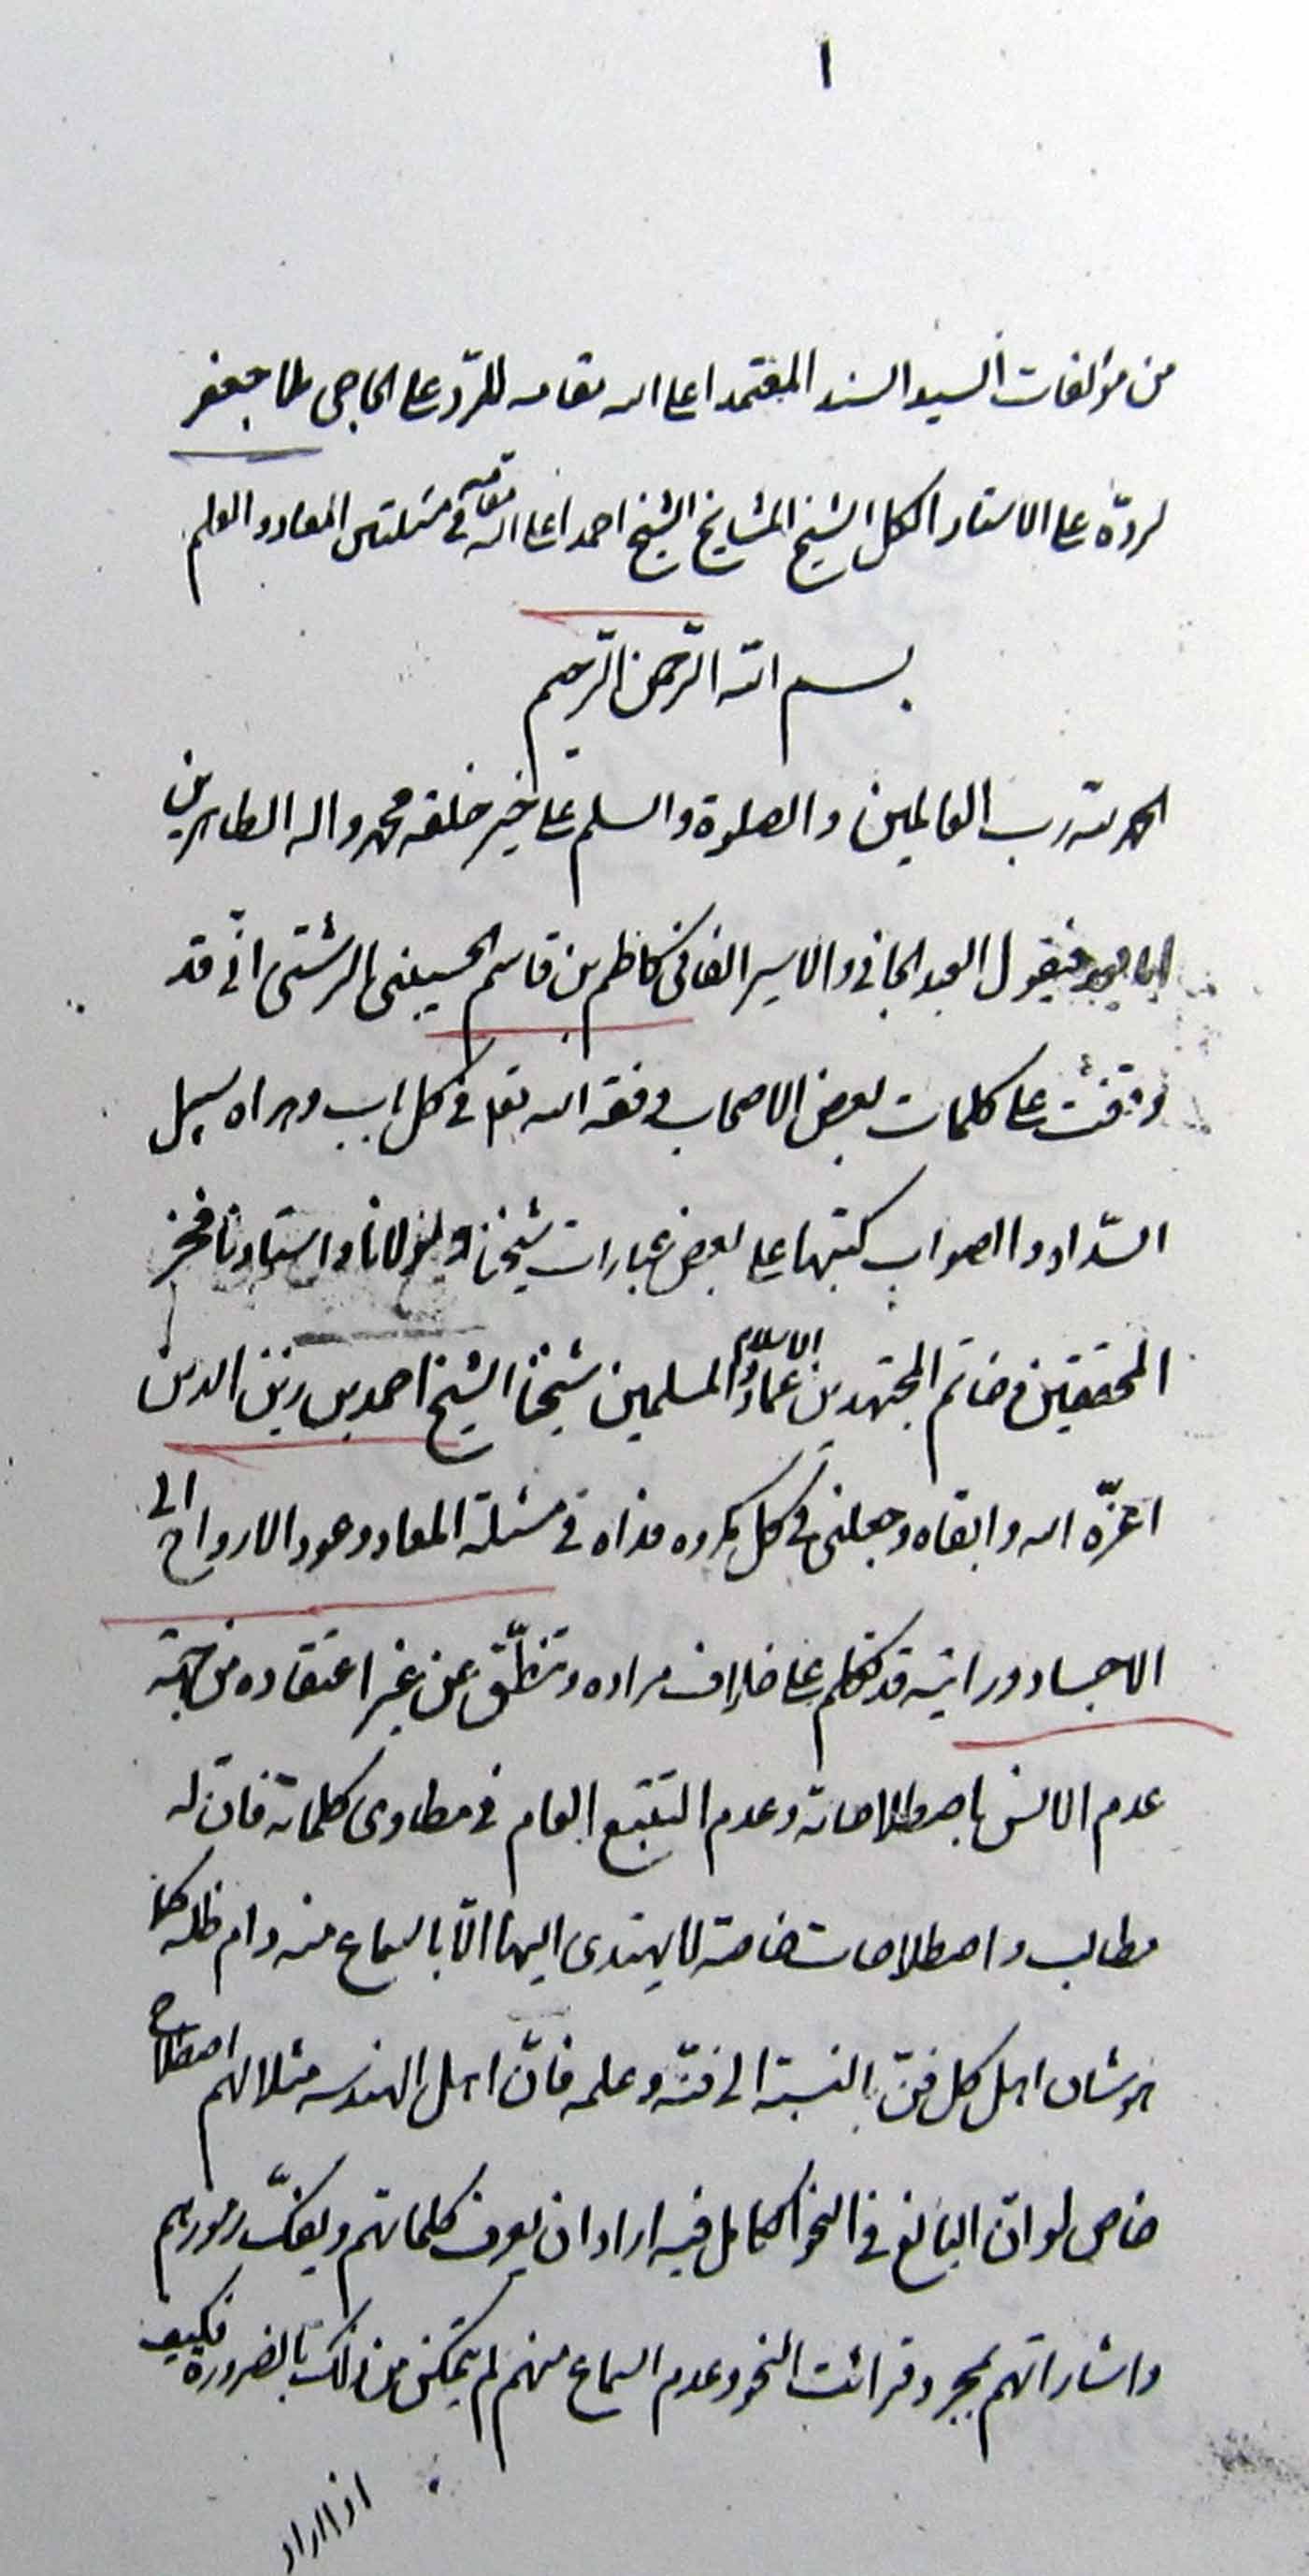 ١
من مؤلفات السيد السند المعتمد اعلى الله مقامه للردّ على الحاجى ملا جعفر
لردّه على الاستاد الكل الشيخ المشايخ الشيخ احمد اعلى الله مقامه فى مسئلتى المعاد و العلم
بسم الله الرّحمن الرّحيم
الحمد لله رب العالمين و الصلوة و السلم على خير خلقه محمد و اله الطاهرين
اما بعد فيقول العبد الجانى و الاسير الفانى كاظم بن قاسم الحسينى الرشتى انّى قد
وقفت على كلمات لبعض الاصحاب وفقه الله تعا فى كل باب و هداه سبيل
السّداد و الصواب كتبها على بعض عبارات شيخنا و مولانا و استادنا فخر
المحققين و خاتم المجتهدين عماد الاسلام و المسلمين شيخنا الشيخ احمد بن زين الدين
اعزّه الله و ابقاه و جعلنى فى كل مكروه فداه فى مسئلة المعاد و عود الارواح الى
الاجساد و رايته قد تكلم على خلاف مراده و تنطّق عن غير اعتقاده من جهة
عدم الانس باصطلاحاته و عدم التتبع العام فى مطاوى كلماته فان له
مطالب و اصطلاحات خاصة لا يهتدى اليها الّا بالسماع منه دام ظله كما
هو شان اهل كل فنّ بالنسبة الى فنّه و علمه فانّ اهل الهندسه مثلا لهم اصطلاح
خاص لو انّ البالغ فى النحو الكامل فيه اراد ان يعرف كلماتهم و يفكّ رموزهم
و اشاراتهم بمجرد قرائت النحو و عدم السماع منهم لم يتمكن من ذلك بالضرورة فكيف
اذا اراد